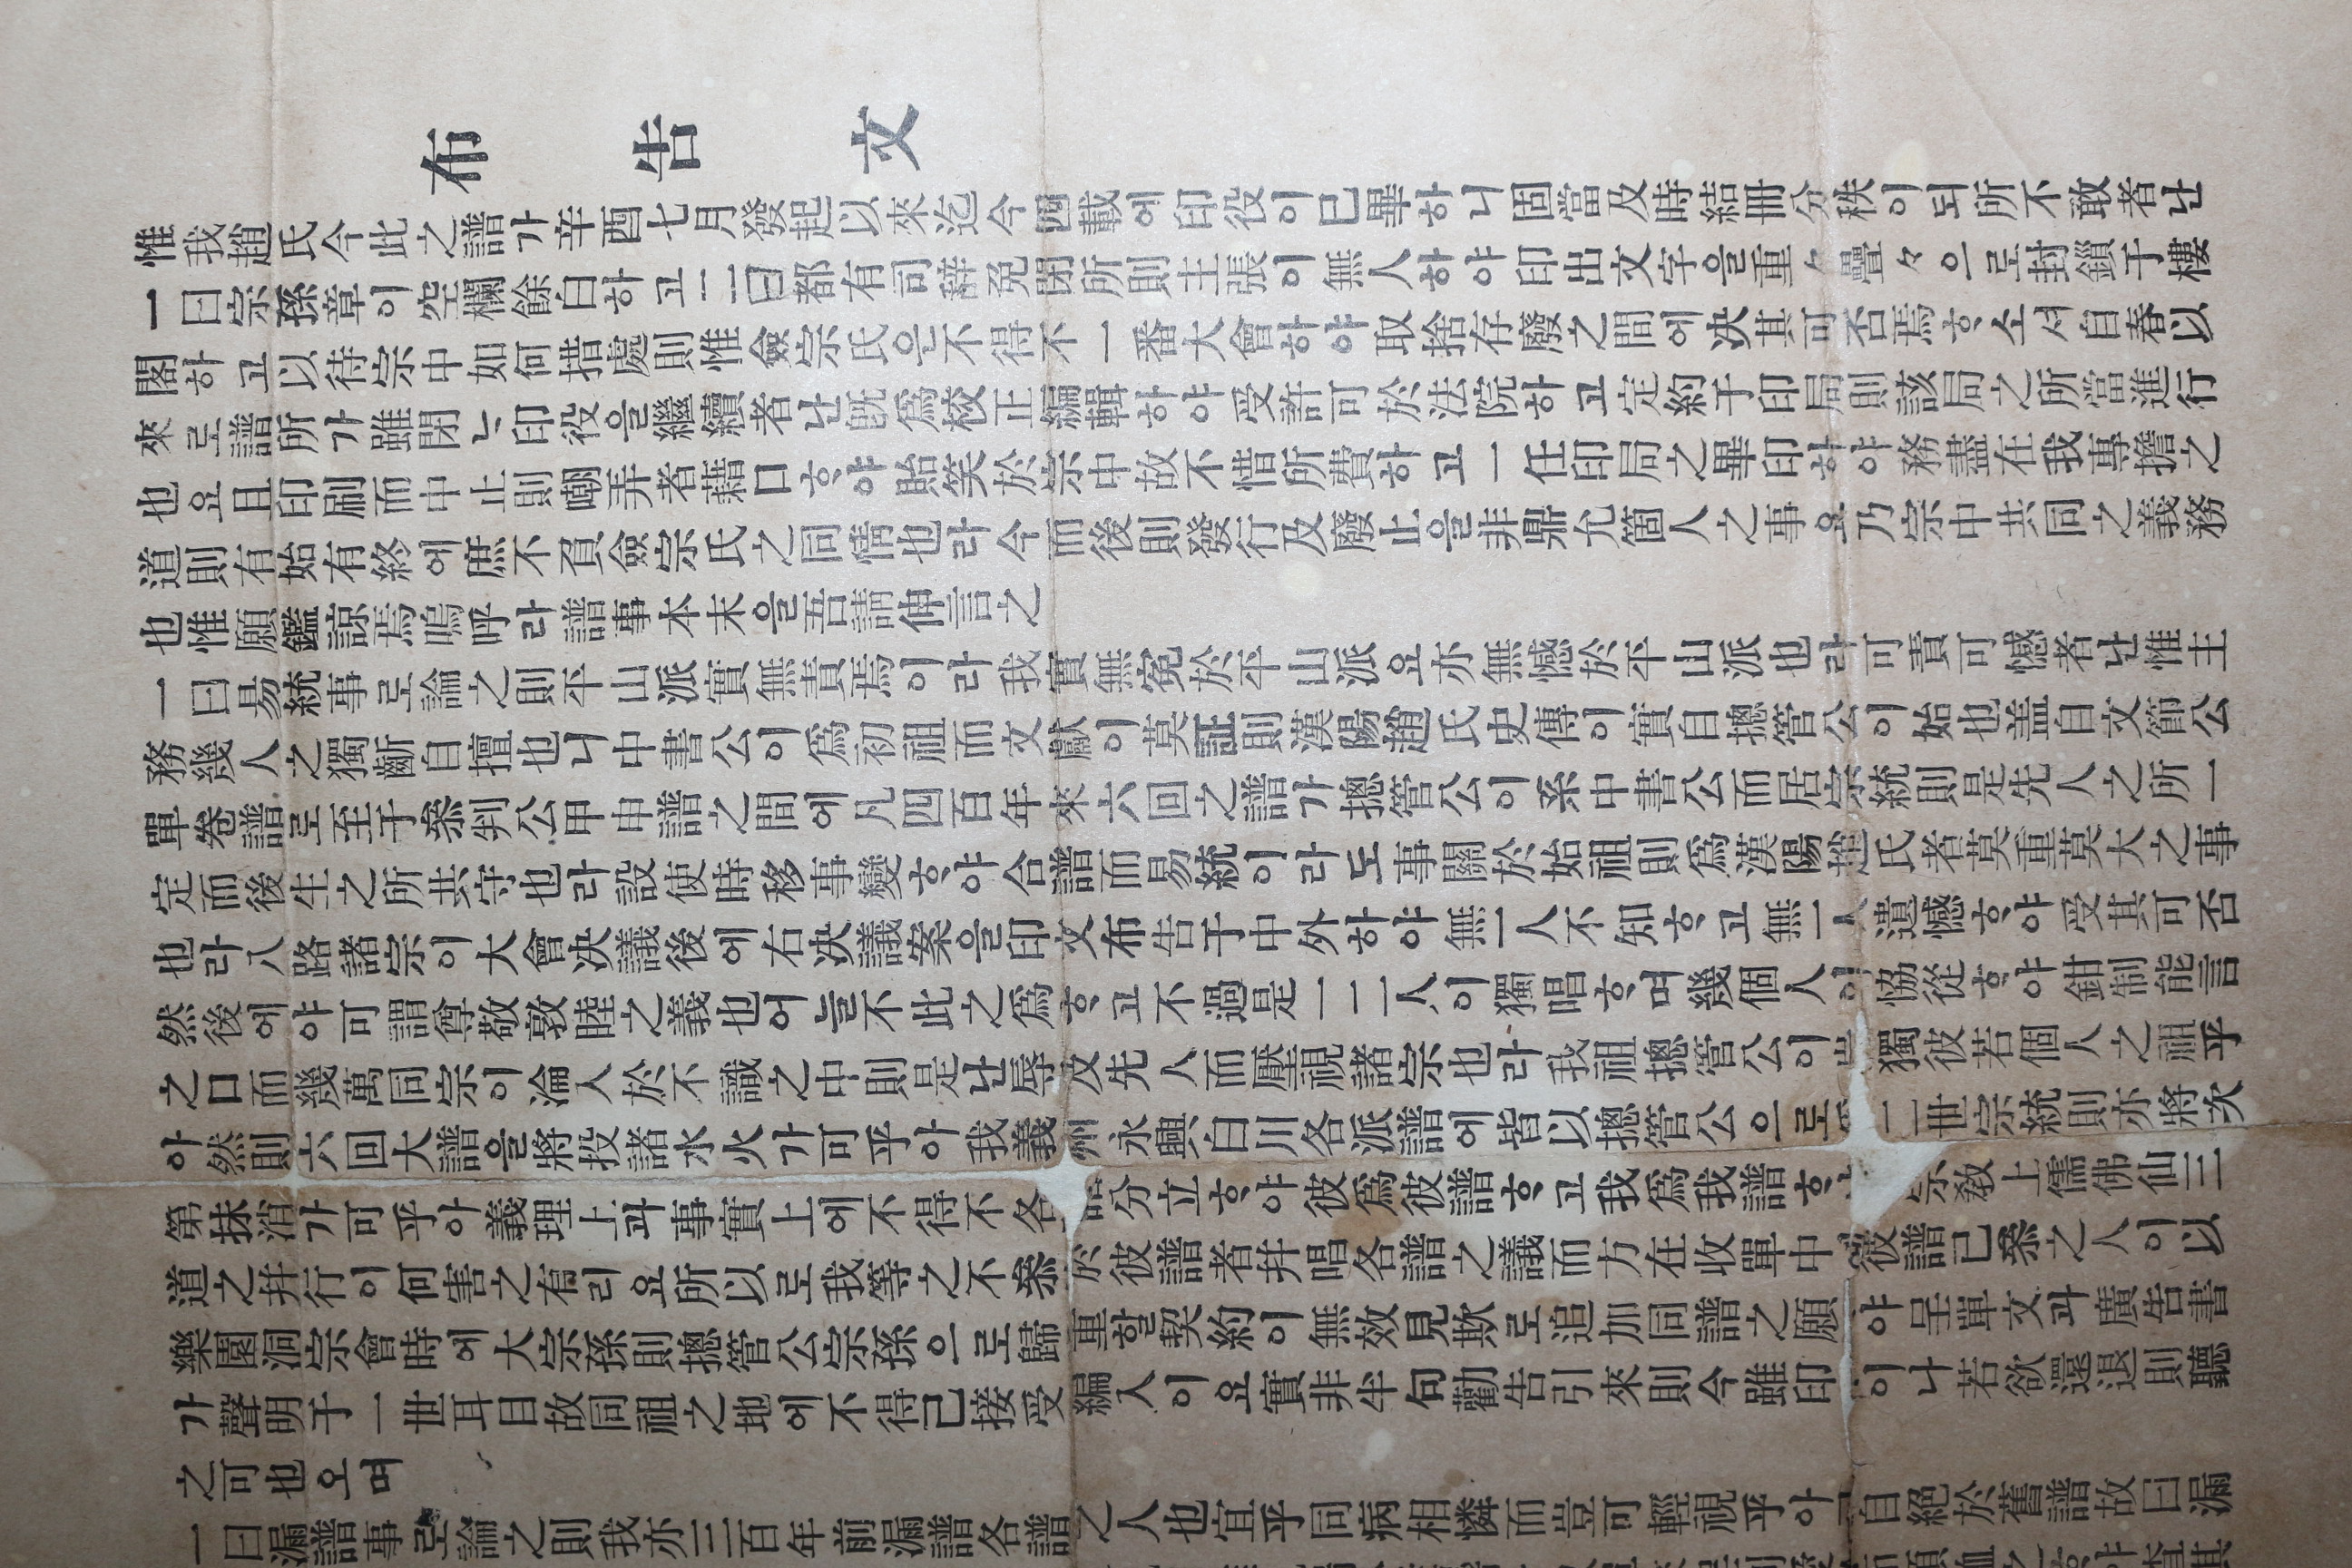 布告文
惟我趙氏今此之譜가辛酉七月發起以來迄今四載에印役이已畢하니固當及時結冊分秩이되所不敢者난
一曰宗孫章이空欄餘白하고二曰都有司辭免閉所則主張이無人하야印出文字을重々疊々으로封鎖于樓
閣하고以待宗中如何措處則惟僉宗氏은不得不一番大會하야取捨存廢之間에決其可否焉ᄒᆞ소셔自春以
來로譜所가雖閉ᄂᆞ印役을繼續者난旣爲校正編輯하야受許可於法院하고定約于印局則該局之所當進行
也요且印刷而中止則嘲弄者藉口ᄒᆞ야貽笑於宗中故不惜所費하고一任印局之畢印하야務盡在我專擔之
道則有始有終에庶不負僉宗氏之同情也라今而後則發行及廢止을非鼎允箇人之事요乃宗中共同之義務
也惟願鑑諒焉嗚呼라譜事本末을吾請伸言之
一曰易統事로論之則平山派實無責焉이라我實無寃於平山派요亦無憾於平山派也라可責可憾者난惟主
務幾人之獨斷自擅也니中書公이爲初祖而文獻이莫証則漢陽趙氏史傳이實自摠管公이始也盖自文節公
單卷譜로至于叅判公甲申譜之間에凡四百年來六回之譜가摠管公이系中書公而居宗統則是先人之所一
定而後生之所共守也라設使時移事變ᄒᆞ야合譜而易統이라도事關於始祖則爲漢陽趙氏者莫重莫大之事
也라八路諸宗이大會決議後에右決議案을印文布告于中外하야無一人不知ᄒᆞ고無一人遺憾ᄒᆞ야受其可否
然後에야可謂尊敬敦睦之義也어늘不此之爲ᄒᆞ고不過是一二人이獨唱ᄒᆞ며幾個人이恊從ᄒᆞ야鉗制能言
之口而幾萬同宗이淪入於不識之中則是난辱及先人而壓視諸宗也라我祖摠管公이豈獨彼若個人之祖乎
아然則六回大譜을將投諸水火가可乎아我義州永興白川各派譜에皆以摠管公으로 二世宗統則亦將次
第抹消가可乎아義理上과事實上에不得不各 分立ᄒᆞ야彼爲彼譜ᄒᆞ고我爲我譜ᄒᆞ 宗敎上儒佛仙三
道之幷行이何害之有리요所以로我等之不叅於彼譜者幷唱各譜之議而方在收單中 彼譜已叅之人이以
樂園洞宗會時에大宗孫則摠管公宗孫으로歸重할契約이無效見欺로追加同譜之願 야呈單文과廣告書
가聲明于一世耳目故同祖之地에不得已接受編入이요實非半句勸告引來則今雖印 이나若欲還退則聽
之可也오며
一曰漏譜事로論之則我亦三百年前漏譜各譜之人也宜乎同病相憐而豈可輕視乎아 自絕於舊譜故曰漏